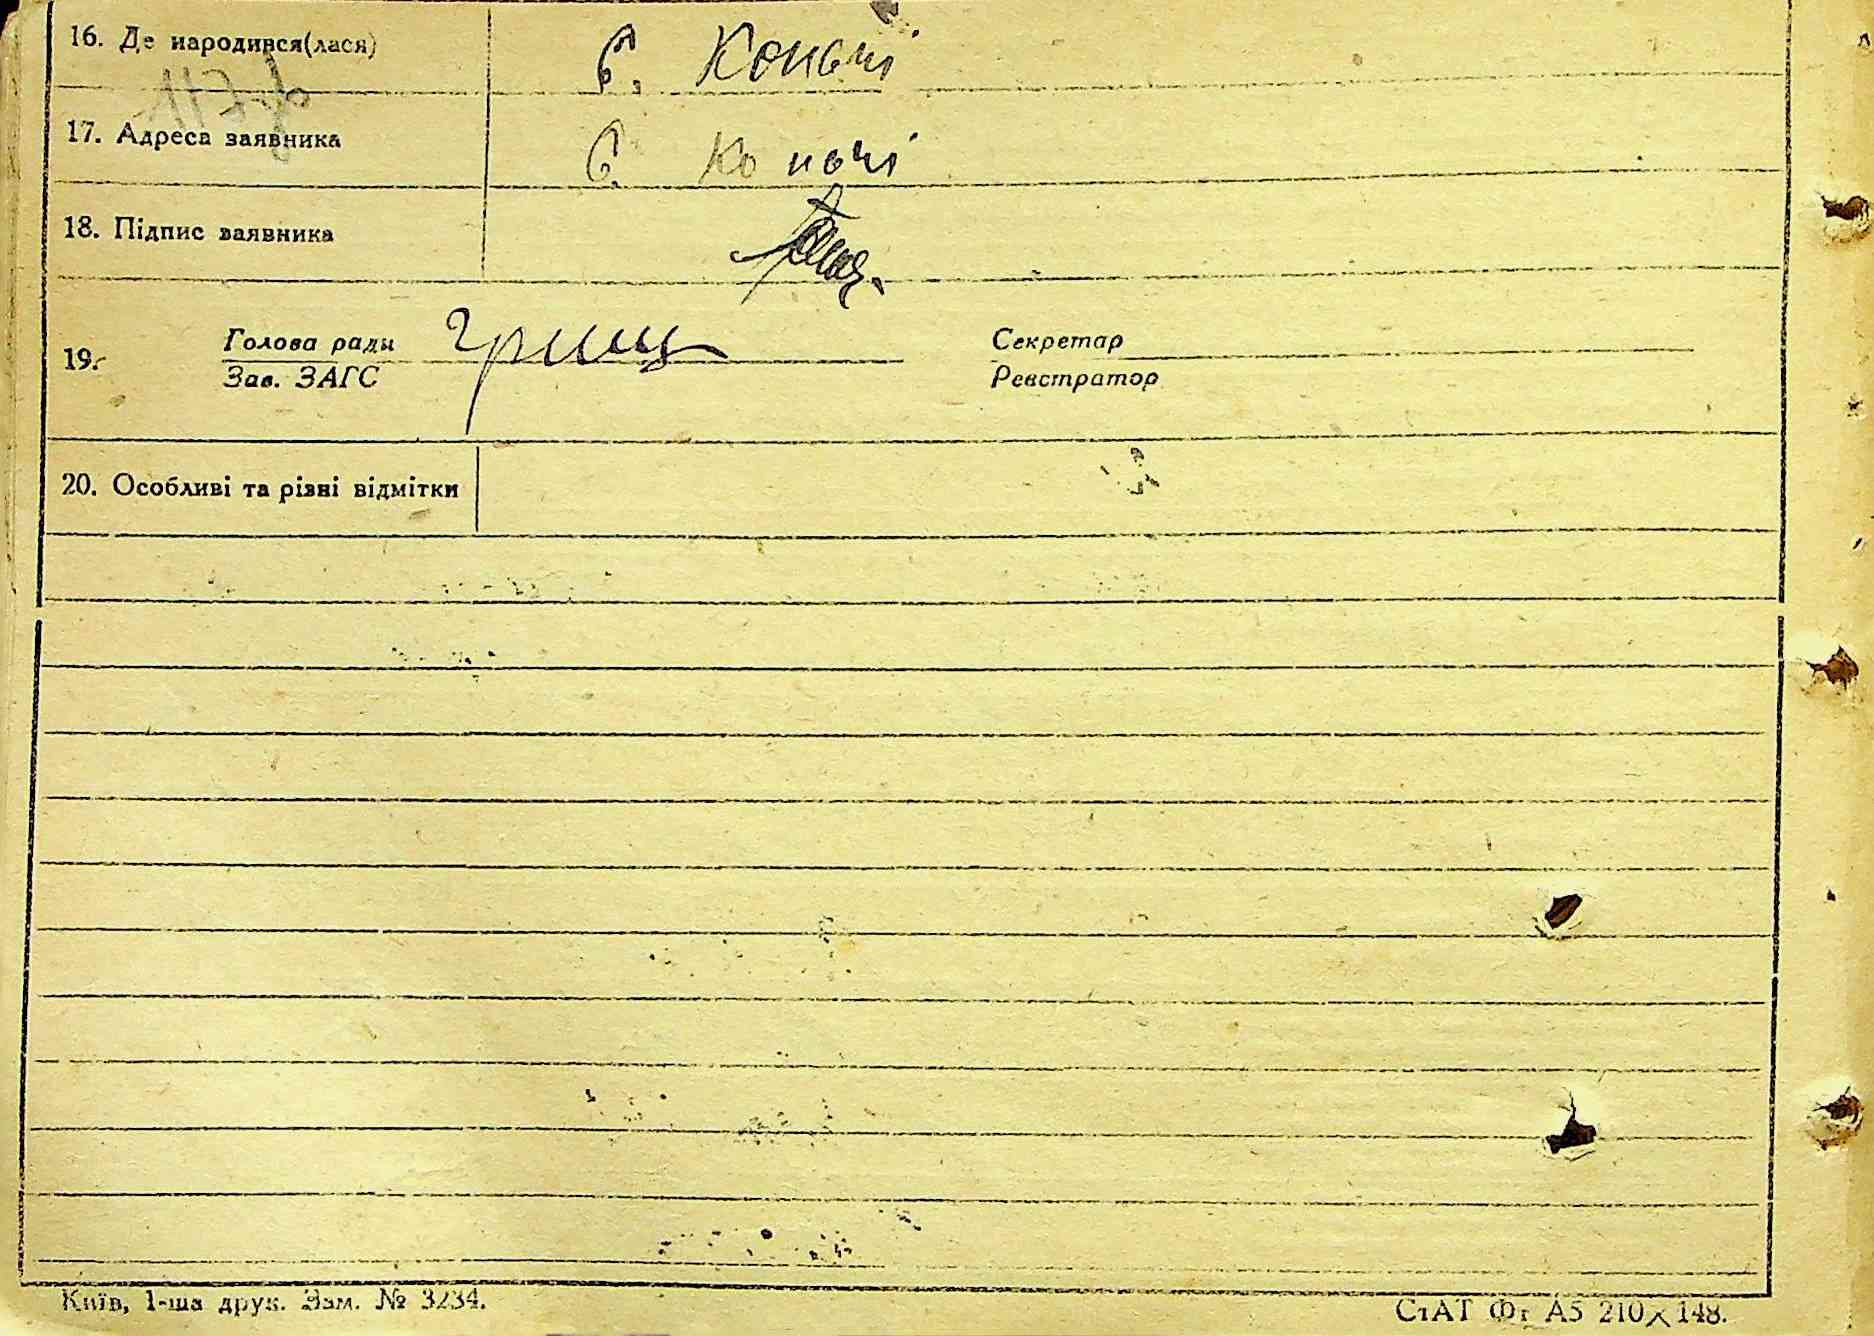 16. Де народився(лася) с. Коначі
17. Адреса заявника с. Коначі
18. Підпис заявника
19. Голова ради Гриц Секретар
Зав. ЗАГС Реєстратор
20. Особливі та різні відмітки
Київ, 1-ша друк. Зам. № 3234. СтАТ Фт А5 210×148.